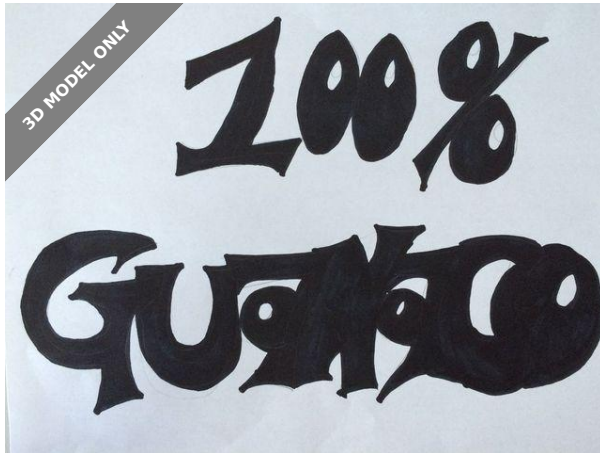 3D MODEL ONLY
100%
GUANACO